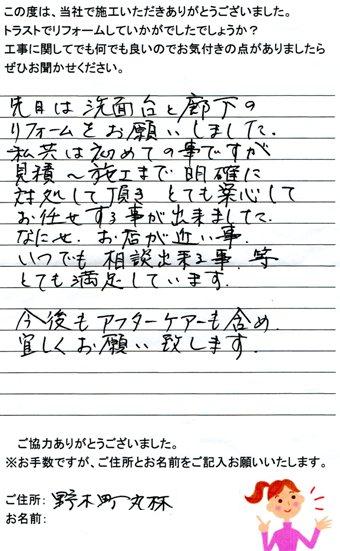 この度は、当社で施工いただきありがとうございました。
トラストでリフォームしていかがでしたでしょうか？
工事に関してでも何でも良いのでお気付きの点がありましたら
ぜひお聞かせください。
先日は洗面台と廊下の
リフォームをお願いしました.
私共は初めての事ですが
見積～施工まで明確に
対処して頂き とても安心して
お任せする事が出来ました.
なにせ、お店が近い事.
いつでも相談出来る事.等
とても満足しています.
今後もアフターケアーも含め.
宜しくお願い致します.
ご協力ありがとうございました。
※お手数ですが、ご住所とお名前をご記入お願いいたします。
ご住所: 野木町丸林
お名前: